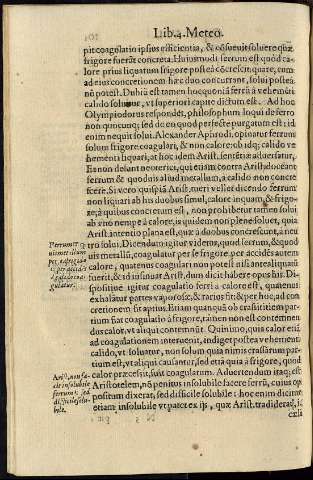 Lib. 4. Meteo.
pit coagulatio ipsius efficientia, & cõsueuit soluere quæ
frigore fuerãt concreta. Huiusmodi ferrum est quód ca-
lore prius liquatum frigore posteá cõcrescit quare, cum
ad eius concretionem duo concurrant, solui posteá
nõ potest. Dubiũ est tamen hoc quoniá ferrũ á vehemẽti
calido soluitur, vt superiori capite dictum est. Ad hoc
Olympiodorus respondet, philosophum loqui de ferro
non quocunq; sed de eo quod perfecte purgatum est: id
enim nequit solui. Alexander Aphrodi. opinatur ferrum
solum frigore coagulari, & non calore: ob idq; calido ve
hementi liquari, at hoc idem Arist. sentẽtiæ aduersatur.
Et non desunt neoterici, qui etiam contra Aristẽ. docẽant
ferrum & quoduis aliud metallum, á calido non concre
scere. Si vero quispiã Arist. tueri vellet dicendo ferrum
non liquari ab his duobus simul, calore inquam, & frigo-
re, á quibus concretum est, non prohibetur tamen solui
ab vno nempe á calore, is quidem non potest tueri, quia
Arist. intentio plana est, quæ á duobus concrescunt, á neu
tro solui. Dicendum igitur videtur, quod ferrum, & quod
uis metallũ, coagulatur per se frigore, per accidẽs autem
calore, quatenus coagulari non potest nisi ante aliquatur
fuerit, & id insinuat Arist, dum dicit habere opus his. Di-
spositiuè igitur coagulatio ferri á calore est, quatenus
exhalãtur partes vaporosæ, & rarius fit: & per hoc, ad con
cretionem fit aptius. Etiam quanquã ob crassitiem par-
tium fiat coagulatio á frigore, raritas non est contemnen
dus calor, vt aliqui contemnũt. Quin imo, quia calor etiã
ad coagulationem interuenit, indiget postea vehementi
calido, vt soluatur, non solum quia nimis crassarum par-
tium est, vt aliqui causantur, sed etiã quia á frigore, quod
calor præcessit, fuit coagulatum. Aduertendum itaq; est
Aristotelem, nõ penitus insolubile facere ferrũ, cuius op
positum dixerat, sed difficile solubile: hoc enim dicitur
etiam insolubile vt patet ex ijs, quæ Arist. tradiderat, i
Ferrum &
Arist. non fa-
cit insolubile
ferrum, sed
difficile solu-
bile.